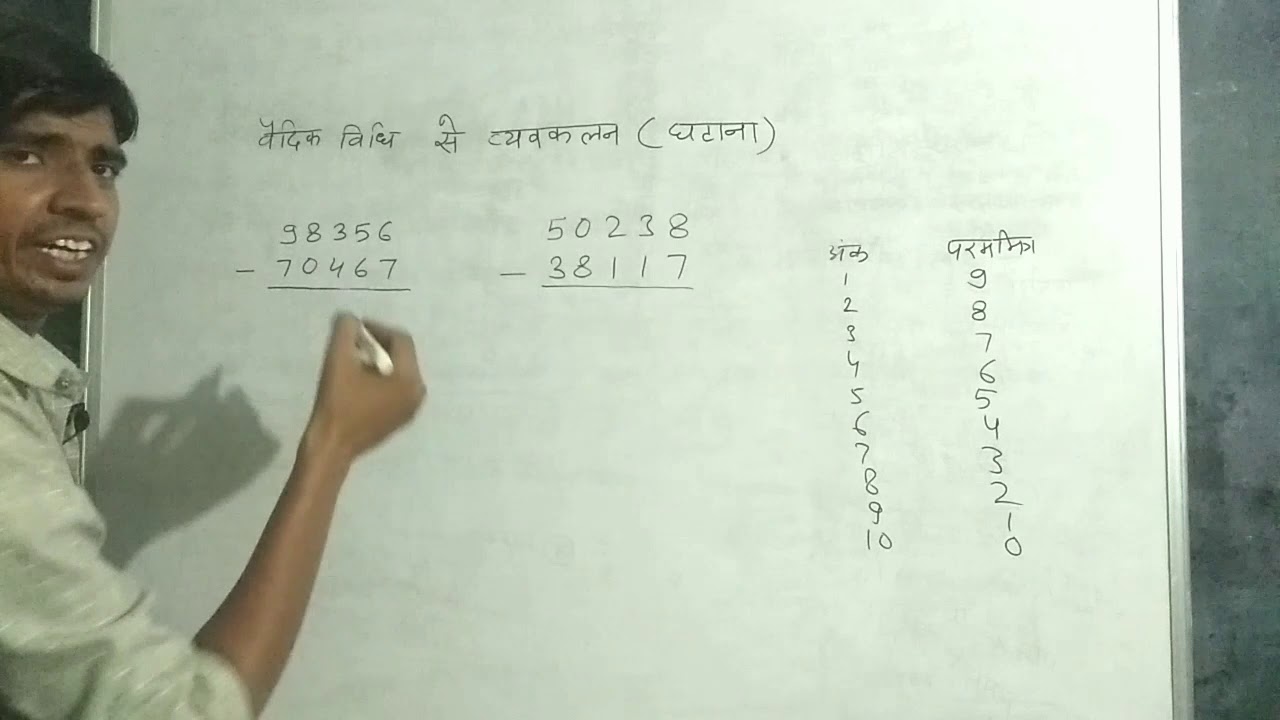 वैदिक विधि से व्यवकलन (घटाना)
98356
- 70467
50238
- 38117
अंक परममित्र
1 9
2 8
3 7
4 6
5 5
6 4
7 3
8 2
9 1
10 0